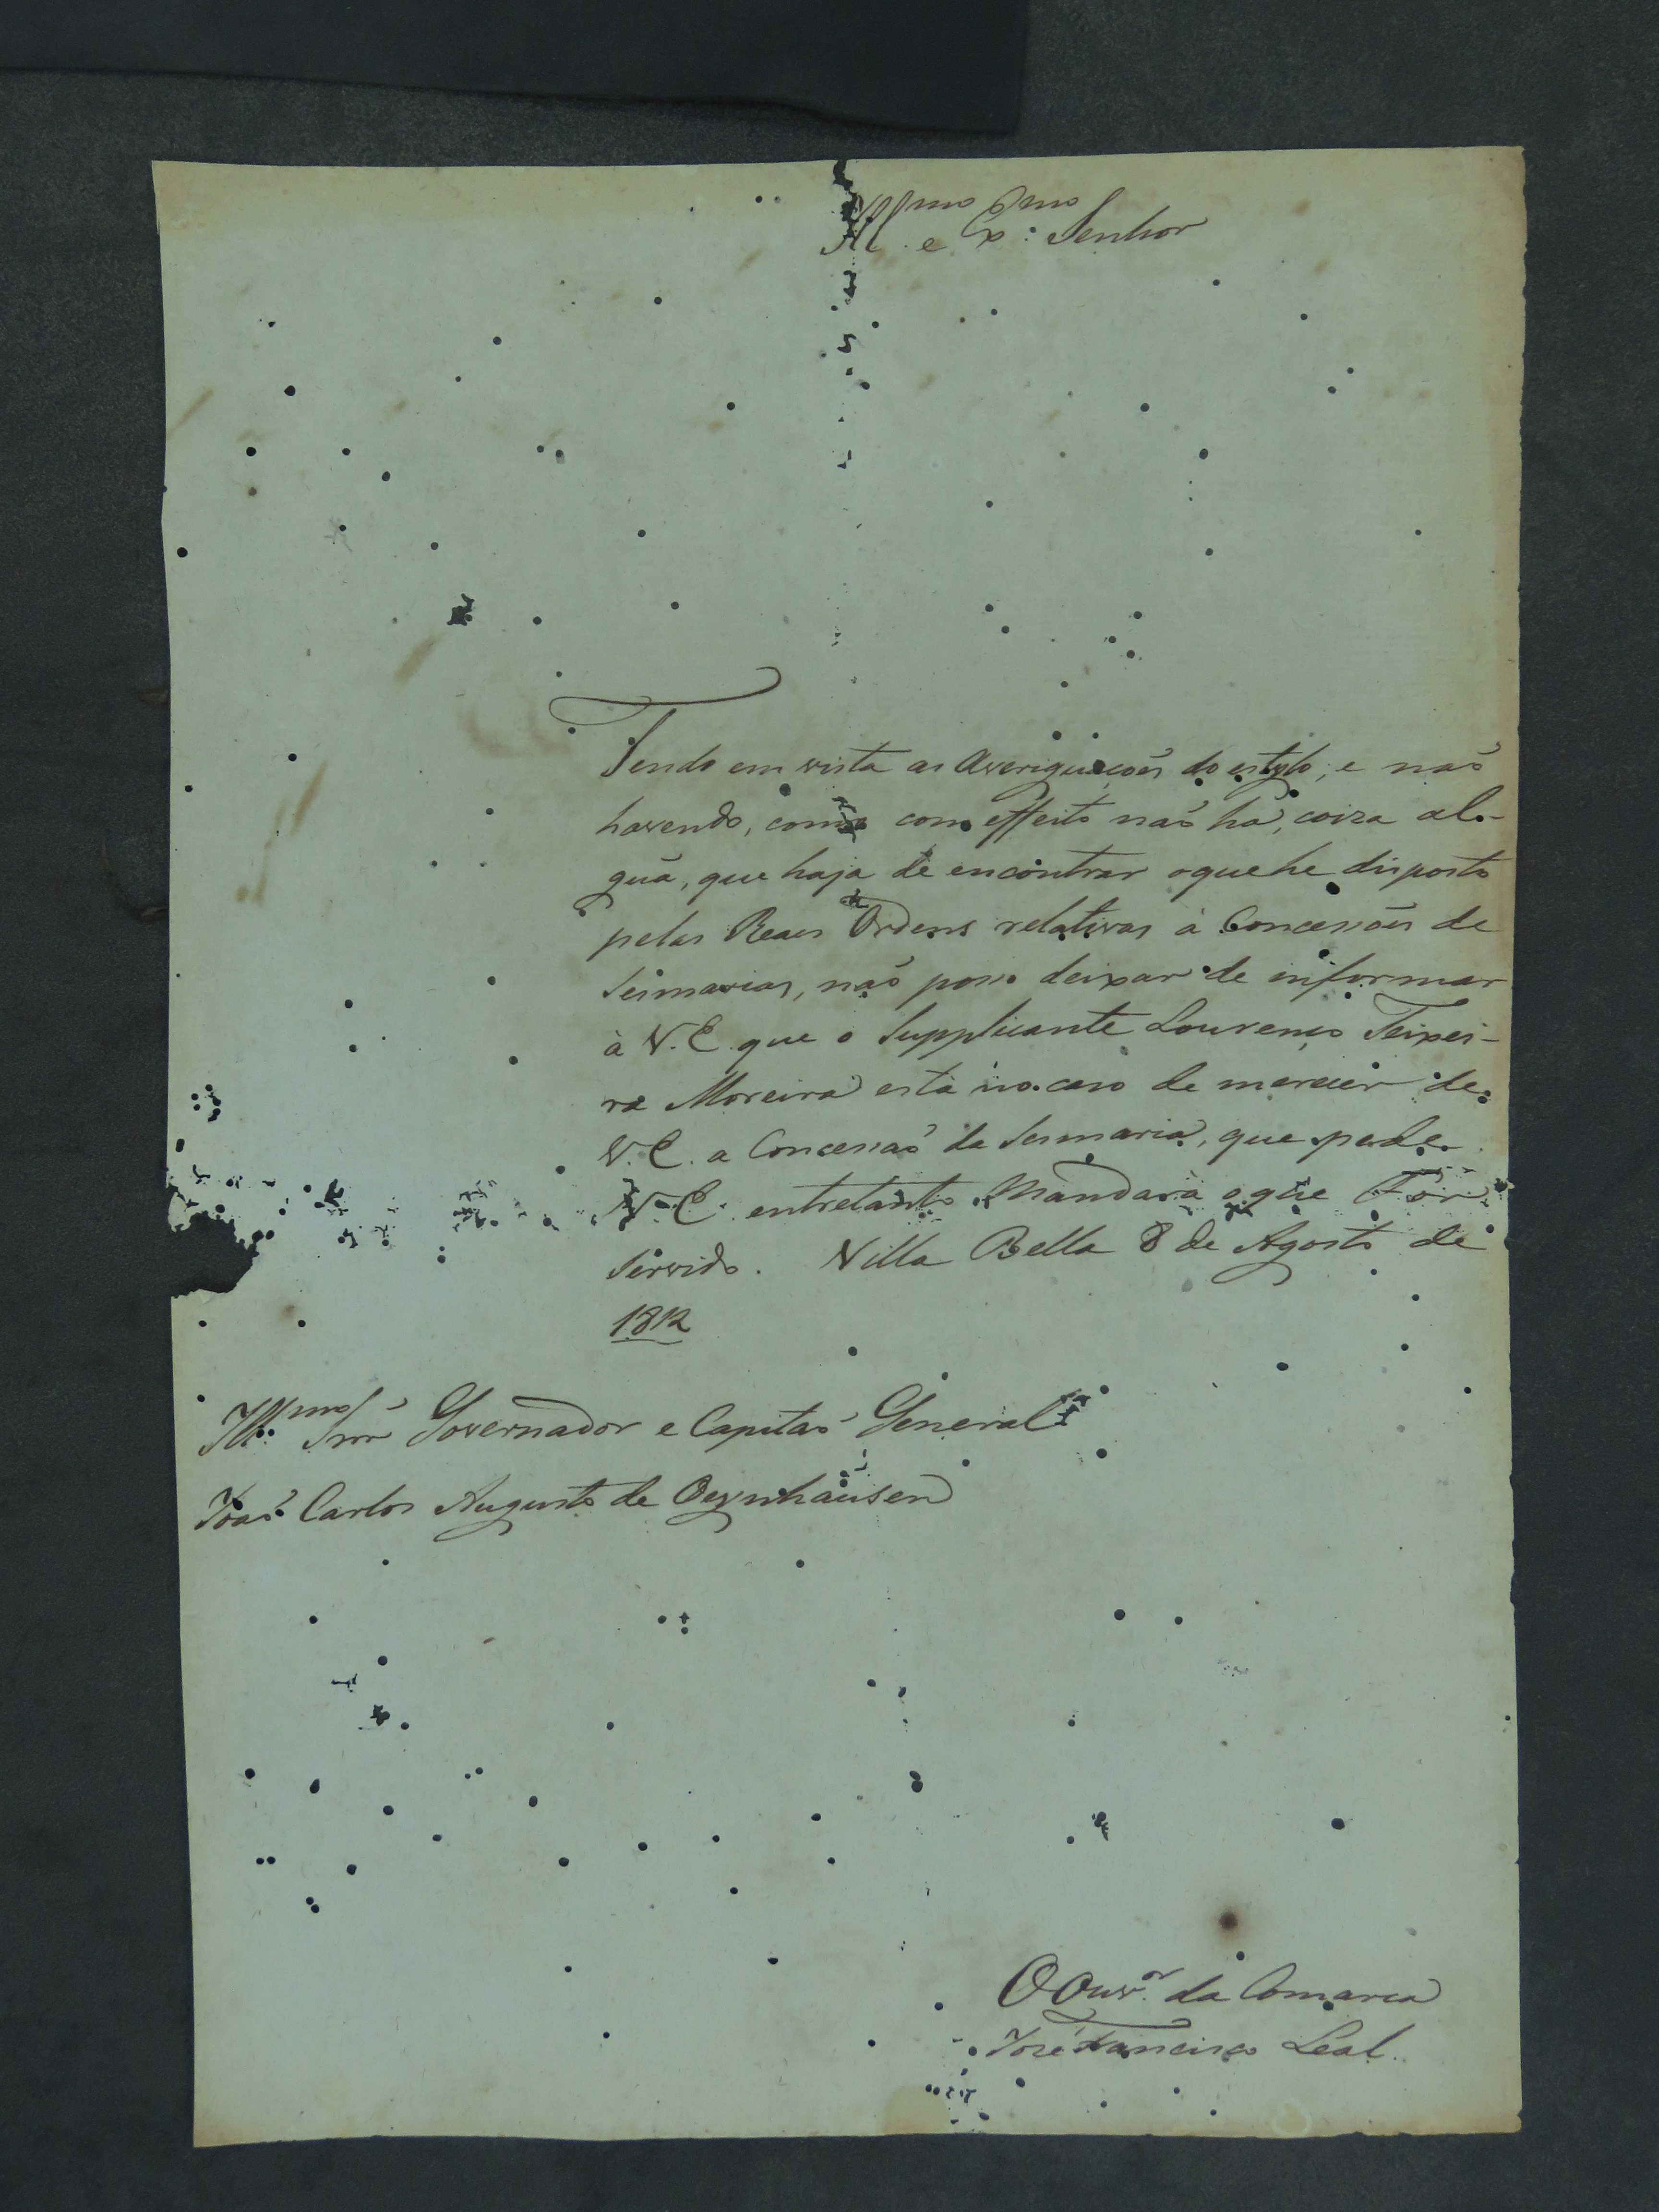 Ill.mo e Ex.mo Senhor
Tendo em vista as Averiguaçoẽs do estylo, e naõ
havendo, como com effeito naõ há, coiza al-
guã, que haja de encontrar oque he disposto
pelas Reaes Ordens relativas à Concessoẽs de
Seimarias, naõ posso deixar de informar
à V. E. que o Supplicante Lourenço Teixei-
ra Moreira está no caso de merecer de
V. E. a Concessaõ da Sesmaria, que pede.
V. E. entretanto Mandarà oque For
Servido. Villa Bella 8 de Agosto de
1812
Ill.mo Snr̃ Governador e Capitaõ General
Joaõ Carlos Augusto de Oeynhausen
O Ouv.or da Comarca
José Francisco Leal.